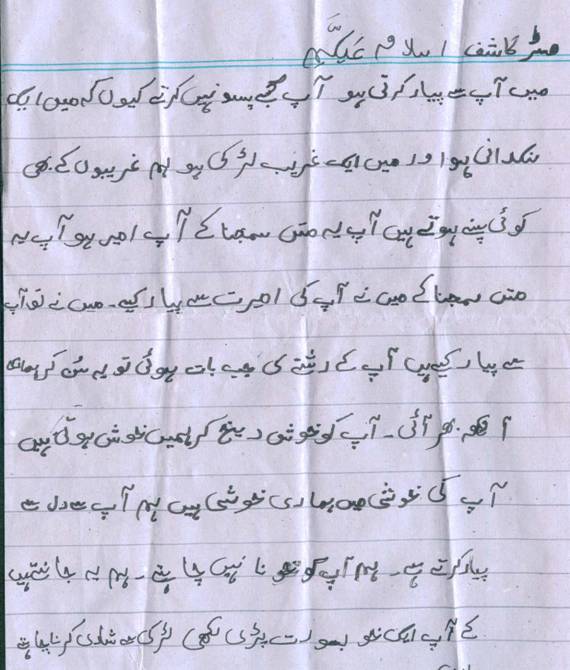 مسٹر کاشف اسلام علیکم
میں آپ سے پیار کرتی ہو آپ مجھے پسو نہیں کرتے کیوں کہ میں ایک
ہو اور میں ایک غریب لڑکی ہو ہم غریبوں کے بھی
کوئی سپنے ہوتے ہیں آپ یہ متں سمجنا کے آپ امیر ہو آپ یہ
متں سمجنا کے میں نے آپ کی امیرت سے پیار کیے۔ میں نے تو آپ
سے پیار کیے ہیں آپ کے رشتے کی جب بات ہوئی تو یہ سُن کر ہماری
آنکھ بھر آئی۔ آپ کو خوشی دیکھ کر ہمیں خوشی ہوتی ہیں
آپ کی خوشی میں ہماری خوشی ہیں ہم آپ سے دل سے
پیار کرتے ہے۔ ہم آپ کو کھونا نہیں چاہتے۔ ہم یہ جانتے ہیں
کے آپ ایک خوبصورت پڑی لکھی لڑکی سے شادی کرنا چاہتے